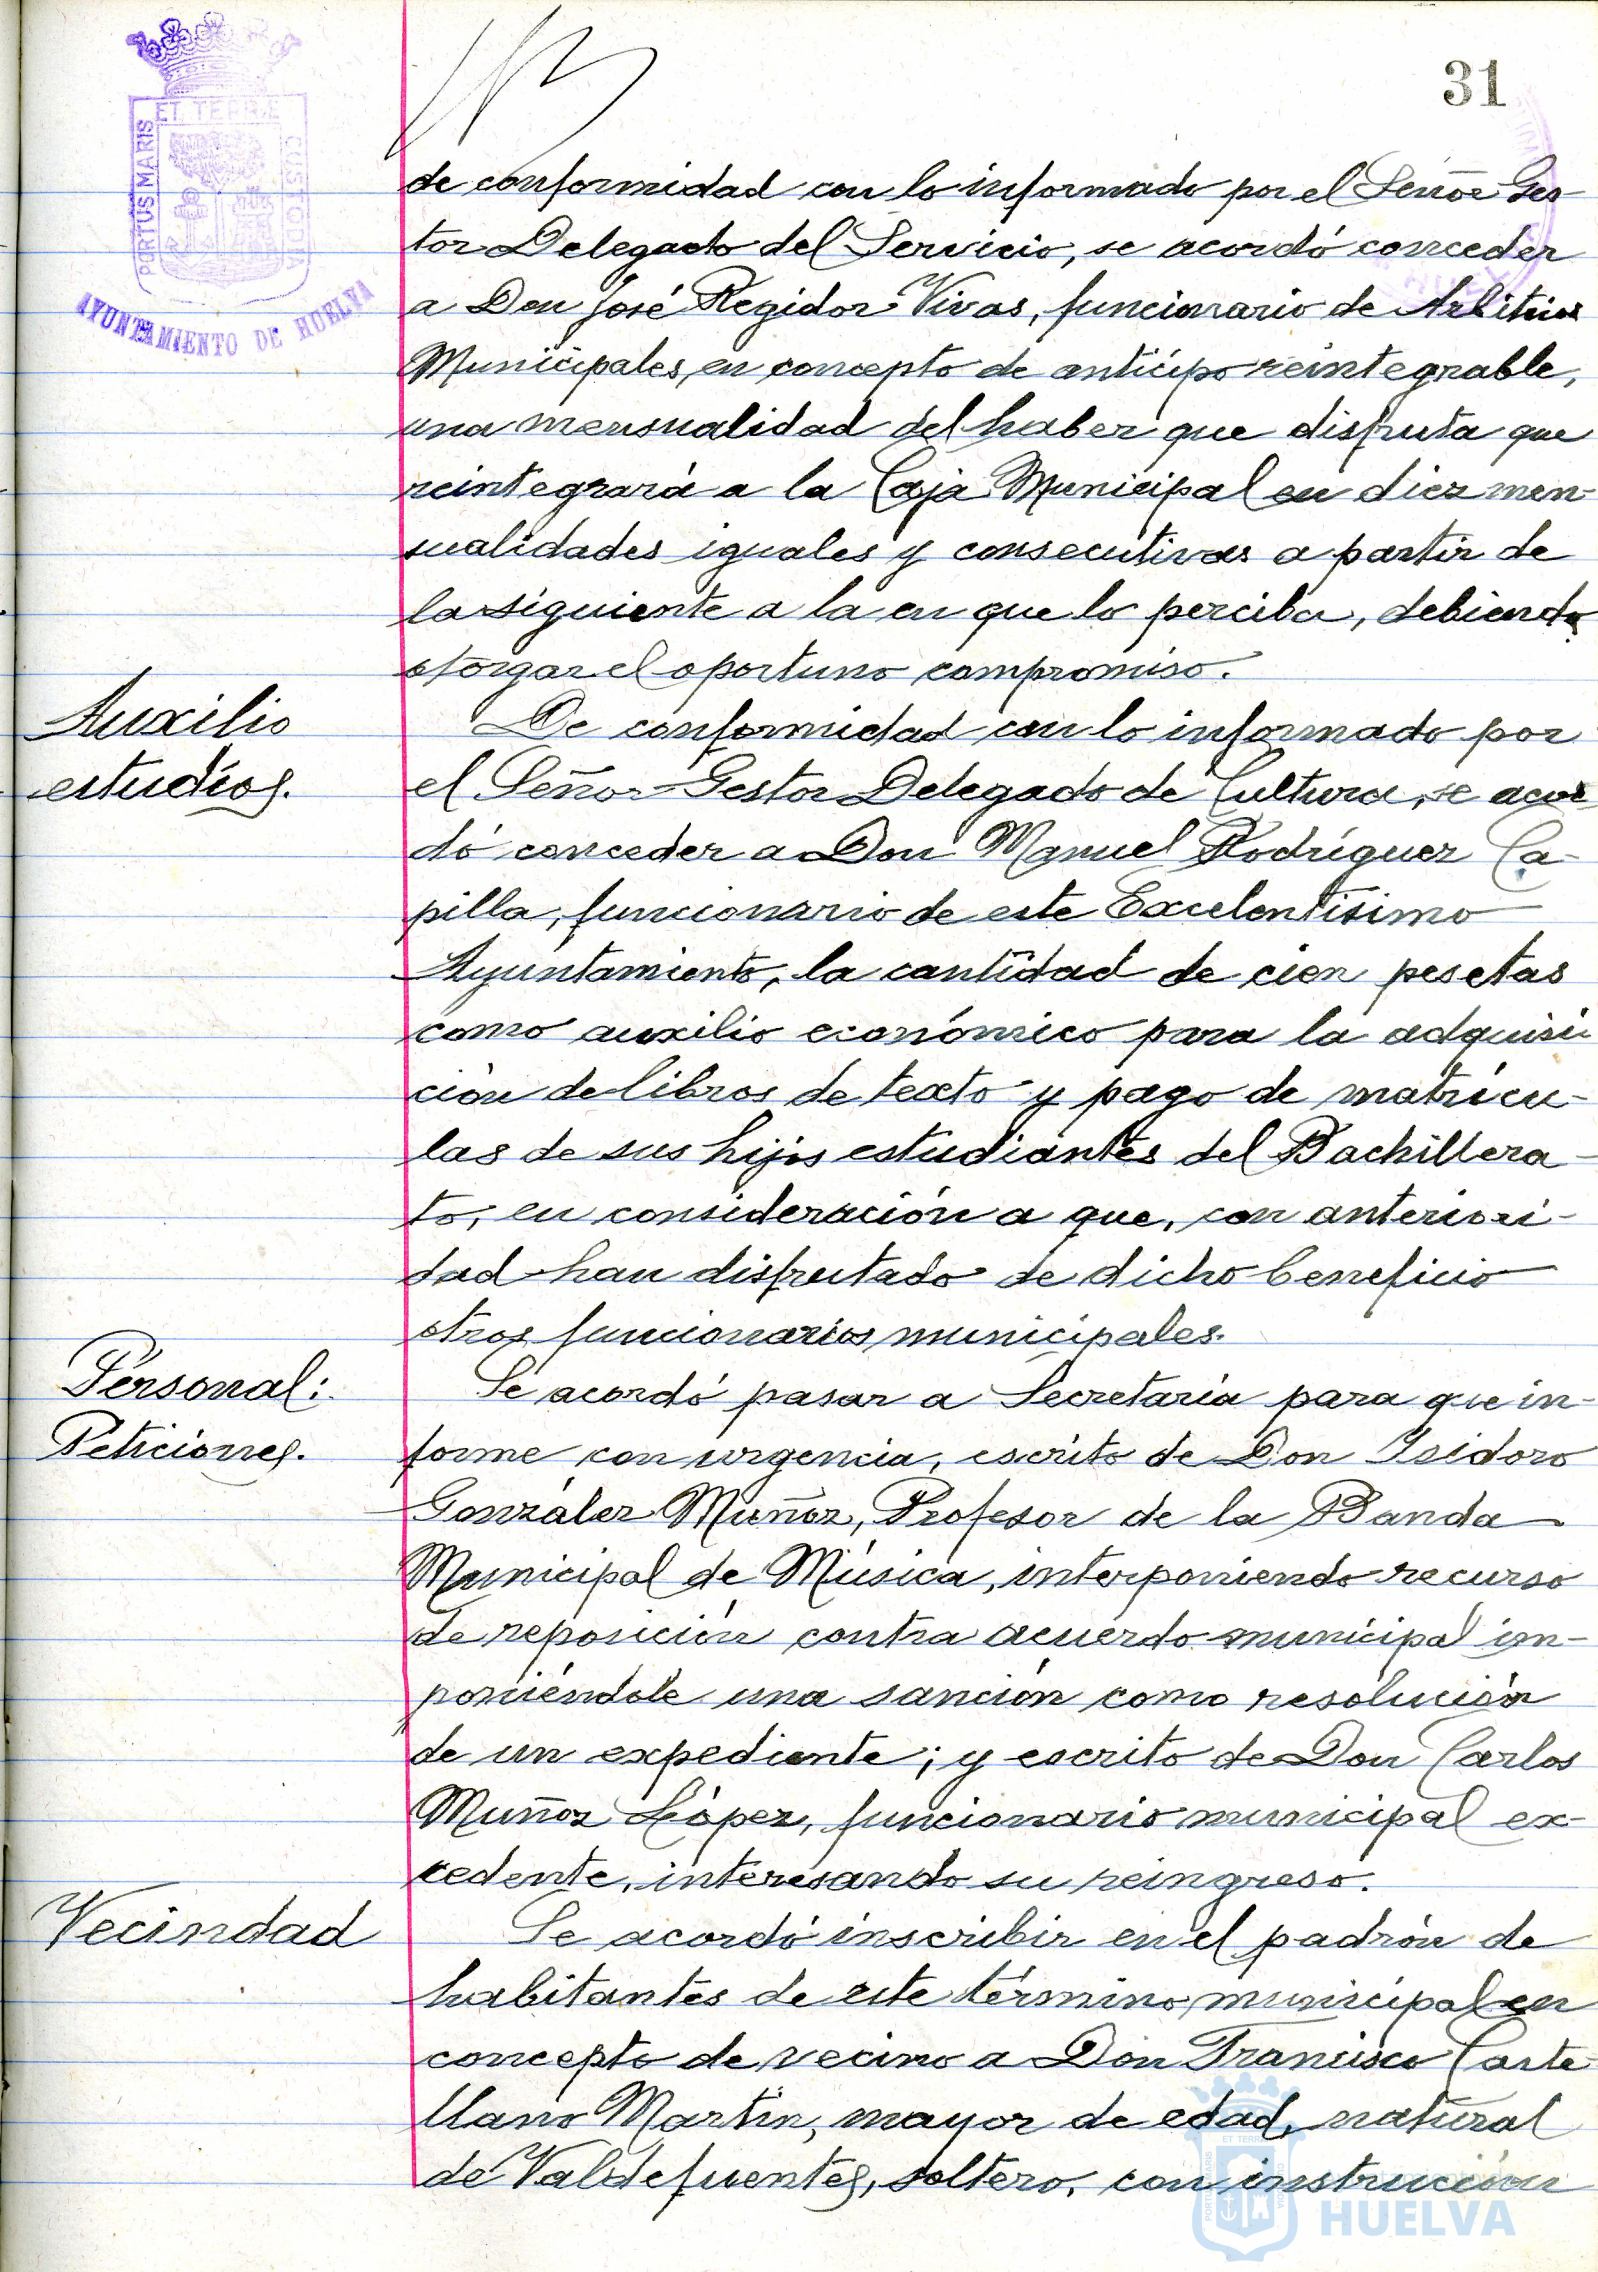 31
PORTUS MARIS
ET TERRE
CUSTODIA
AYUNTAMIENTO DE HUELVA
de conformidad con lo informado por el Señor Ges-
tor Delegado del Servicio, se acordó conceder
a Don José Regidor Vivas, funcionario de Arbitrios
Municipales, en concepto de anticipo reintegrable,
una mensualidad del haber que disfruta que
reintegrará a la Caja Municipal en diez men-
sualidades iguales y consecutivas a partir de
la siguiente a la en que lo perciba, debiendo
otorgar el oportuno compromiso.
Auxilio
estudios.
De conformidad con lo informado por
el Señor Gestor Delegado de Cultura, se acor
dó conceder a Don Manuel Rodríguez Ca-
pilla, funcionario de este Excelentísimo
Ayuntamiento, la cantidad de cien pesetas
como auxilio económico para la adquisi
ción de libros de texto y pago de matrícu-
las de sus hijos estudiantes del Bachillera-
to, en consideración a que, con anteriori-
dad han disfrutado de dicho beneficio
otros funcionarios municipales.
Personal:
Peticiones.
Se acordó pasar a Secretaría para que in-
forme con urgencia, escrito de Don Isidoro
González Muñoz, Profesor de la Banda
Municipal de Música, interponiendo recurso
de reposición contra acuerdo municipal im-
poniéndole una sanción como resolución
de un expediente; y escrito de Don Carlos
Muñoz López, funcionario municipal ex-
cedente, interesando su reingreso.
Vecindad
Se acordó inscribir en el padrón de
habitantes de este término municipal en
concepto de vecino a Don Francisco Caste
llano Martín, mayor de edad, natural
de Valdefuentes, soltero, con instrucción
HUELVA